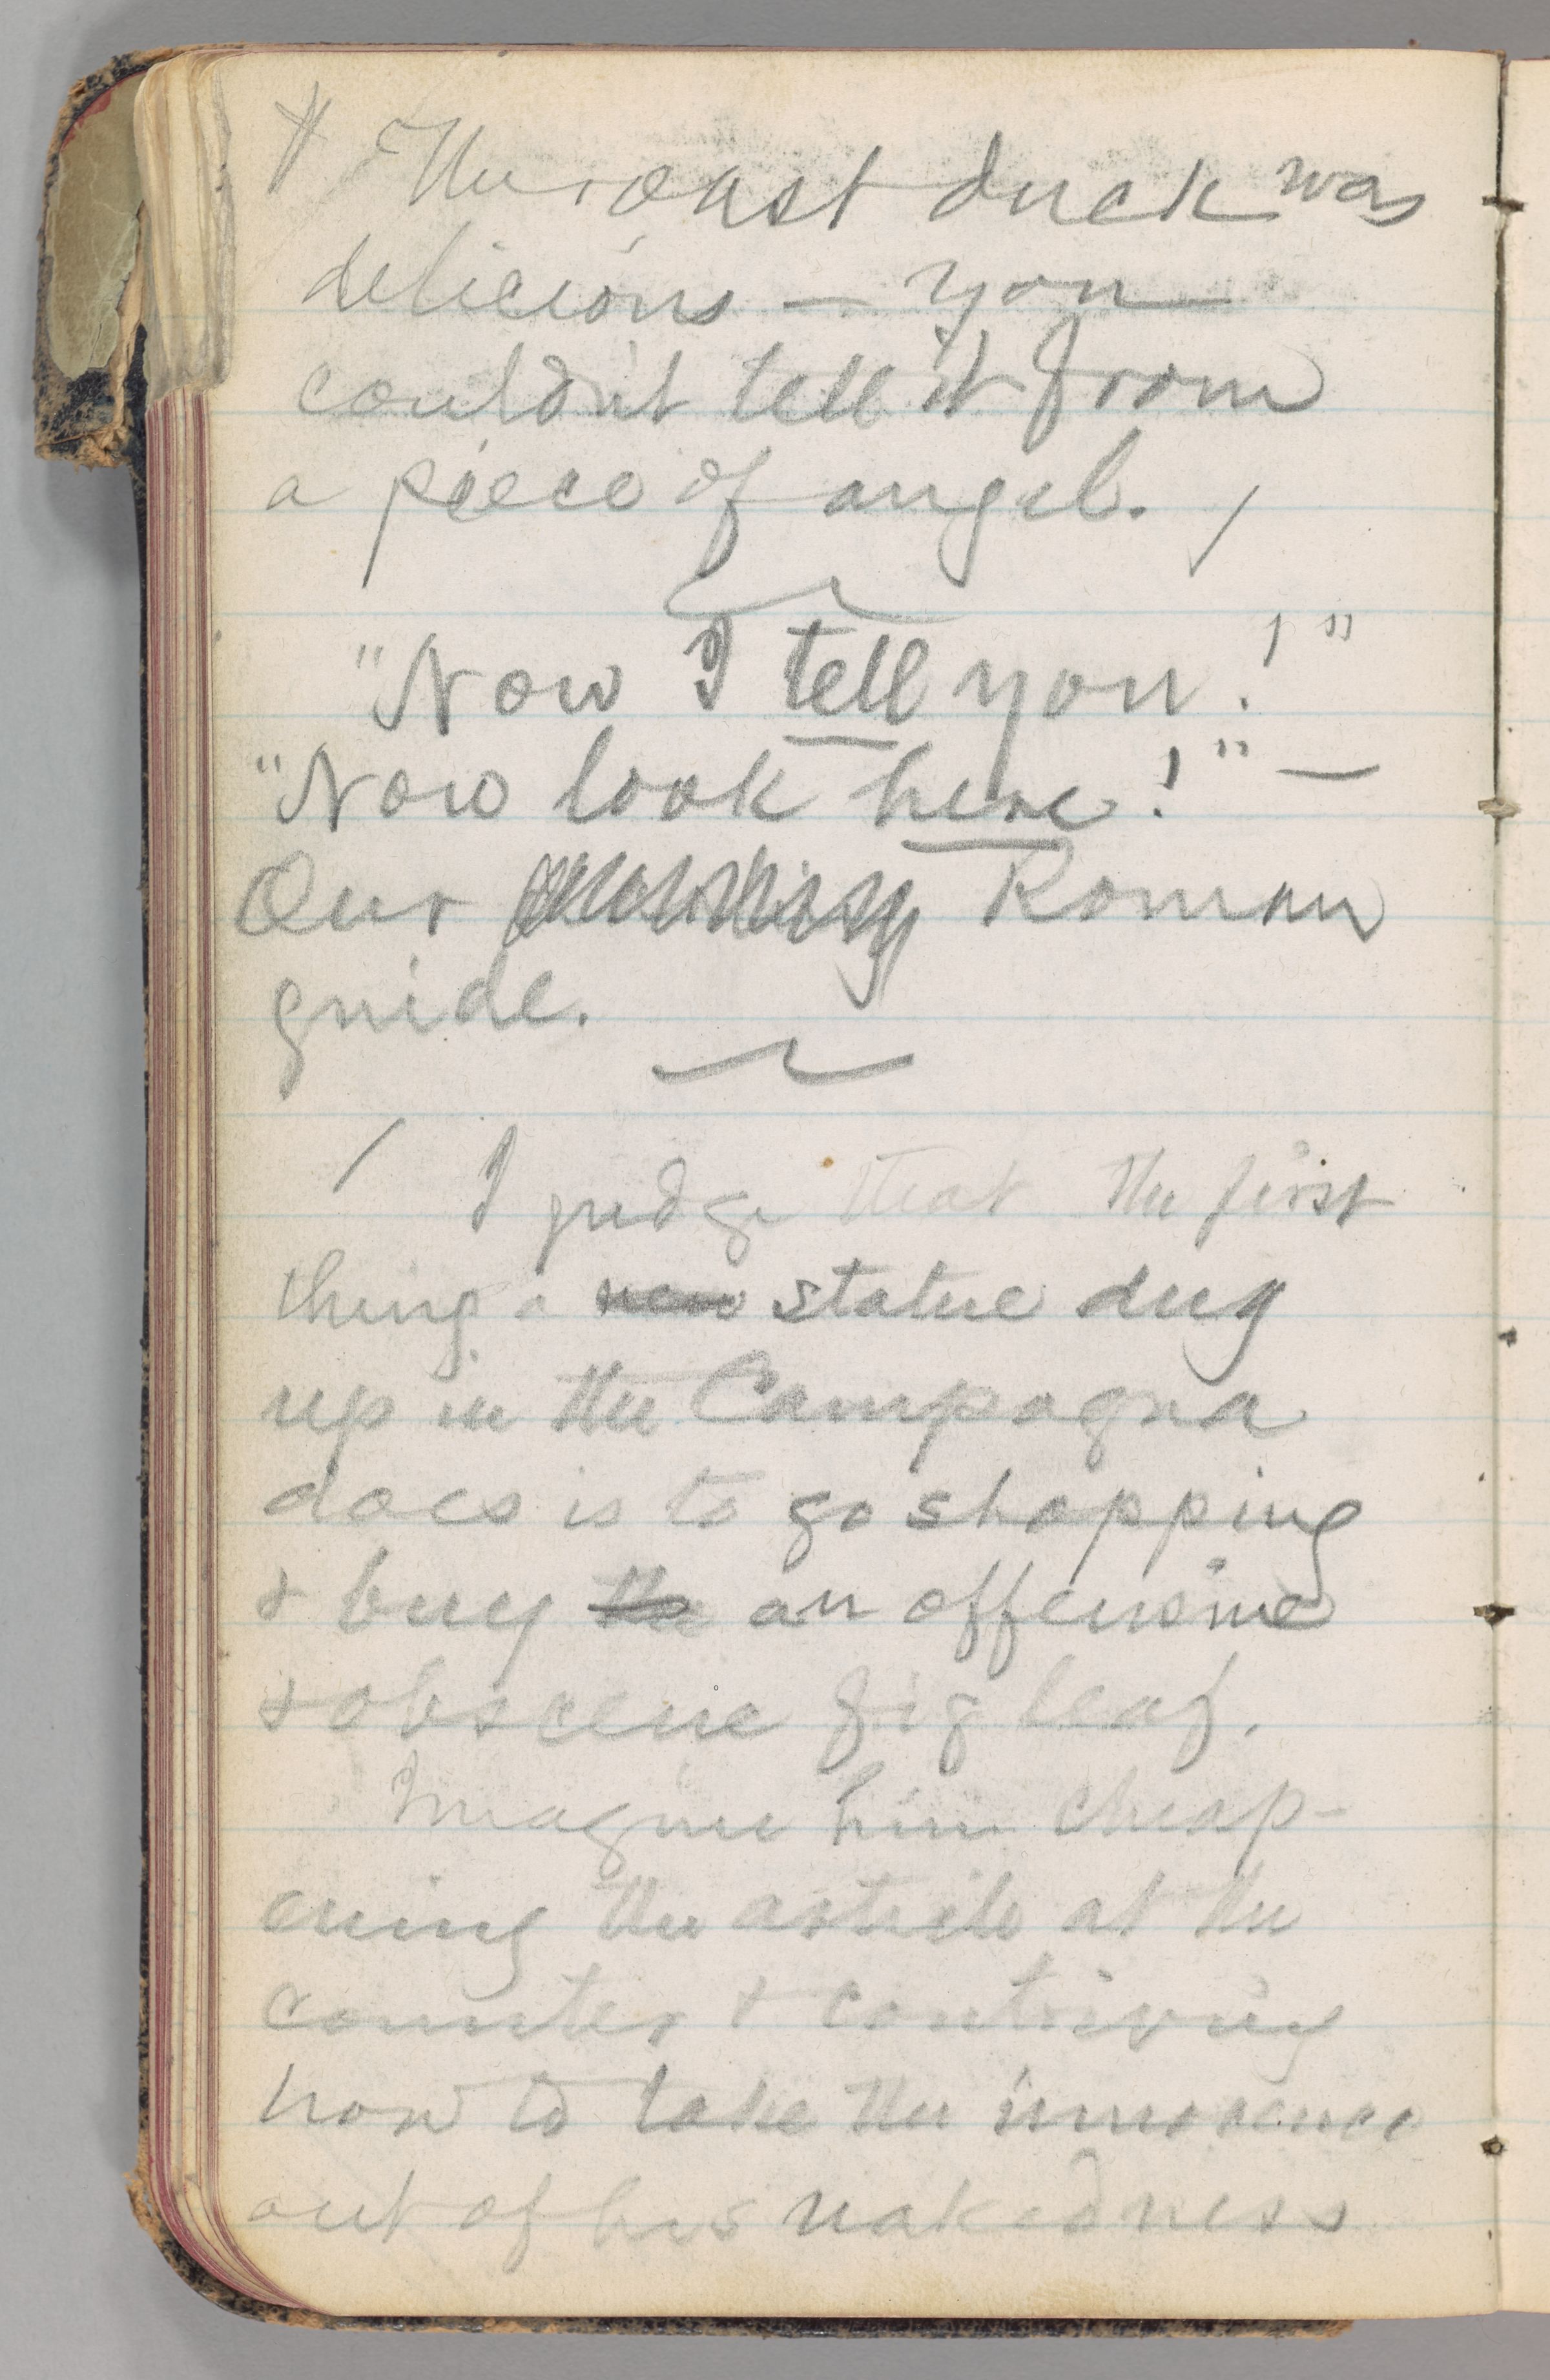 The roast duck was
delicious — you
couldn't tell it from
a piece of angel.
"Now I tell you!"
"Now look here!" —
Our Roman
guide.
I judge that the first
thing a new statue dug
up in the Campagna
does is to go shopping
& buy the an offensive
& obscene fig leaf.
Imagine him cheap-
ening the article at the
counter & contriving
how to take the innocence
out of his nakedness